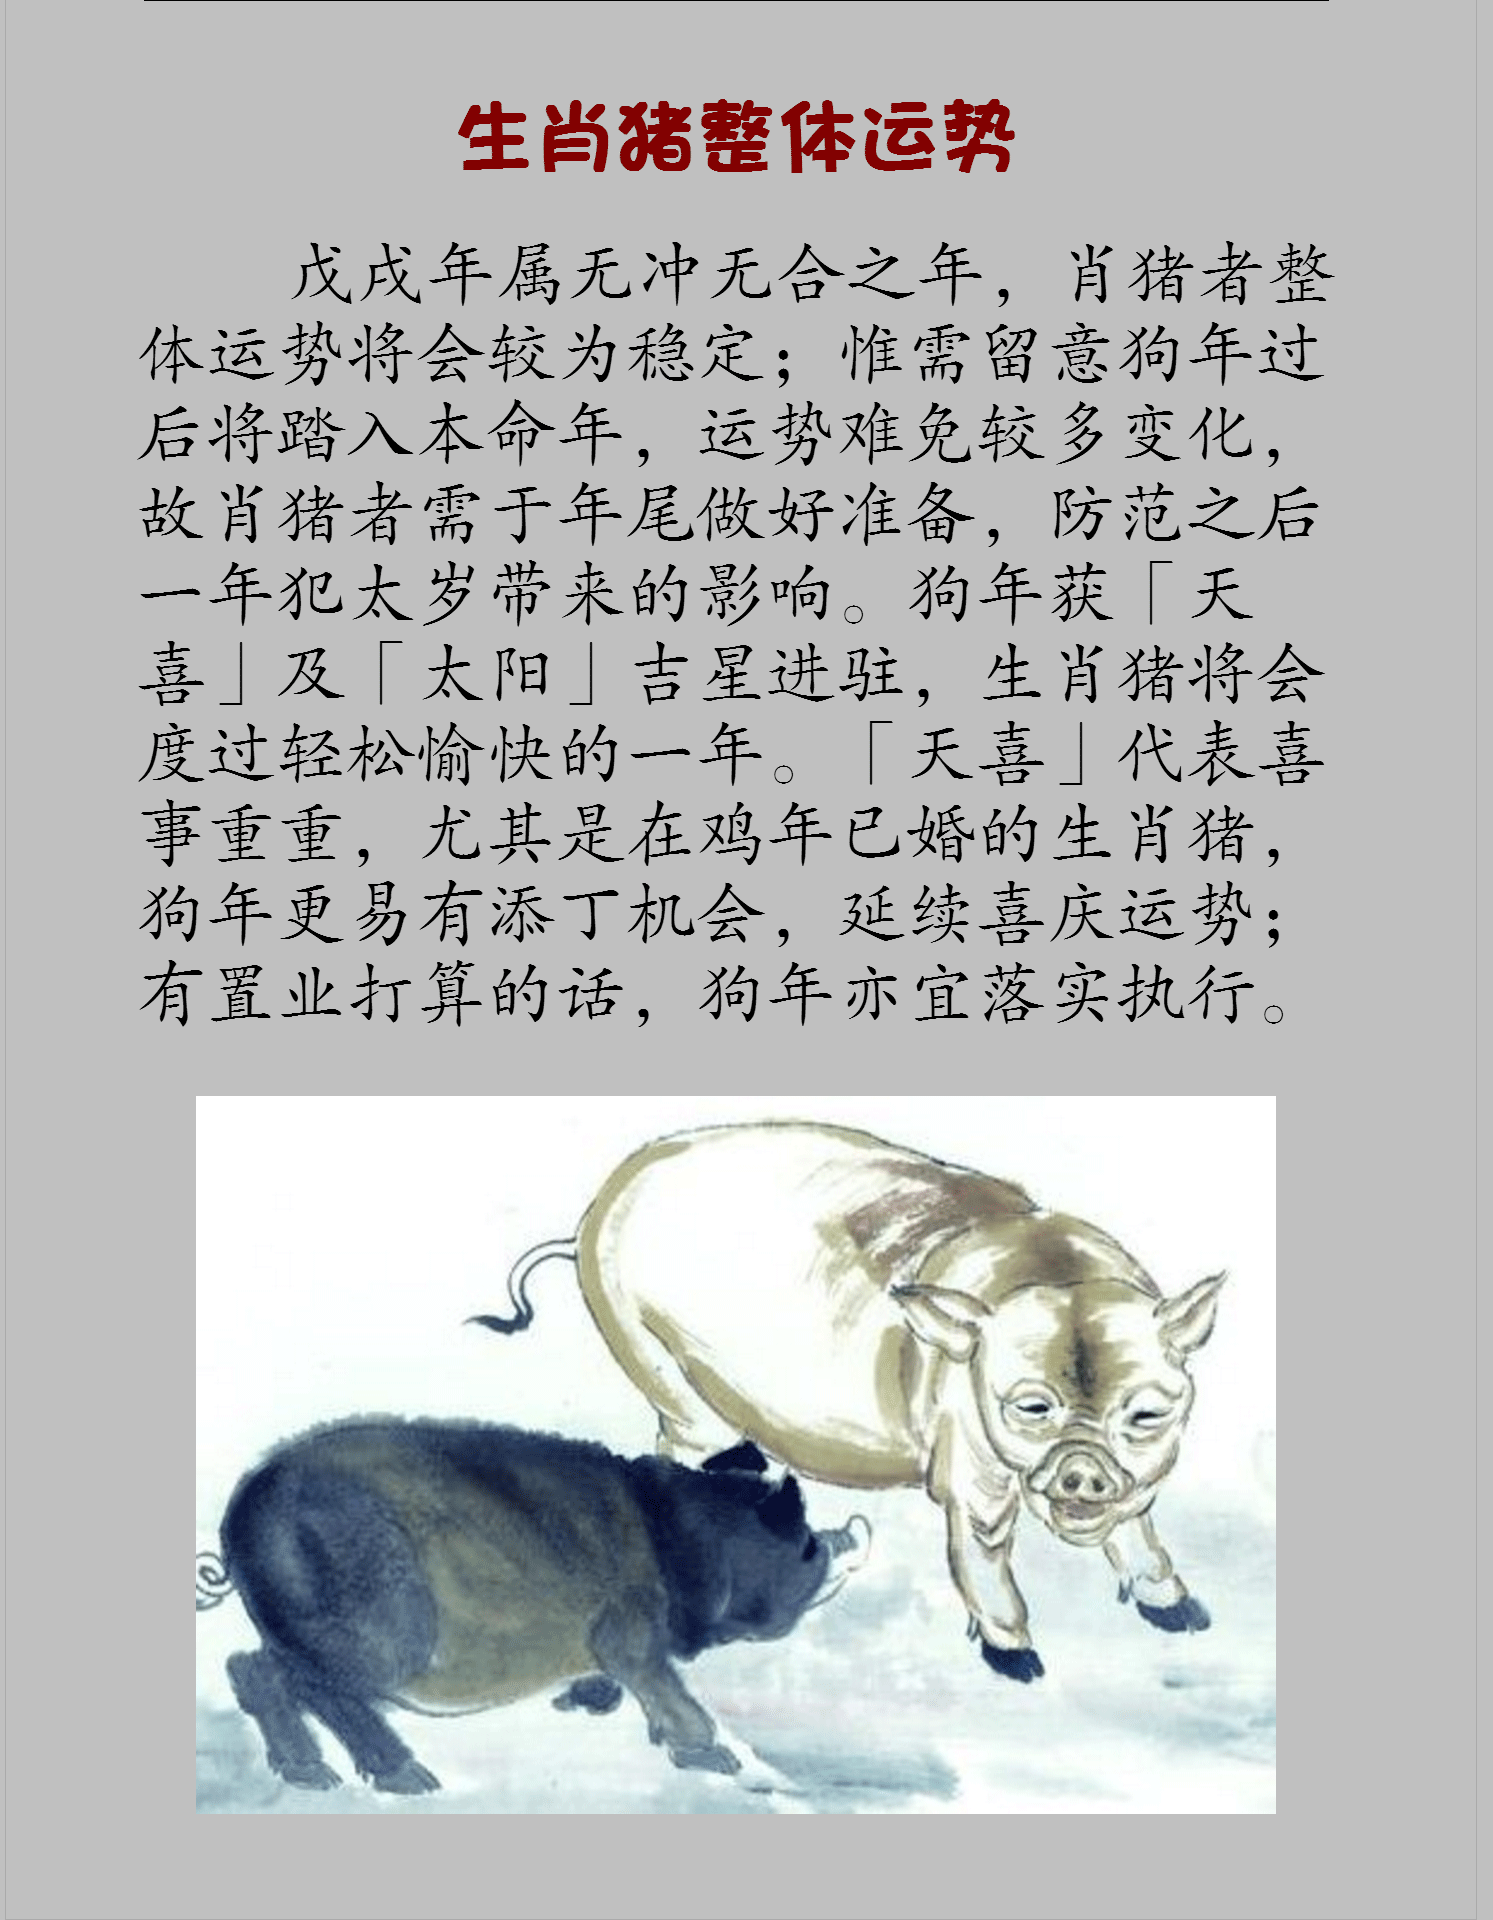 生肖猪整体运势
戊戌年属无冲无合之年，肖猪者整
体运势将会较为稳定；惟需留意狗年过
后将踏入本命年，运势难免较多变化，
故肖猪者需于年尾做好准备，防范之后
一年犯太岁带来的影响。狗年获「天
喜」及「太阳」吉星进驻，生肖猪将会
度过轻松愉快的一年。「天喜」代表喜
事重重，尤其是在鸡年已婚的生肖猪，
狗年更易有添丁机会，延续喜庆运势；
有置业打算的话，狗年亦宜落实执行。